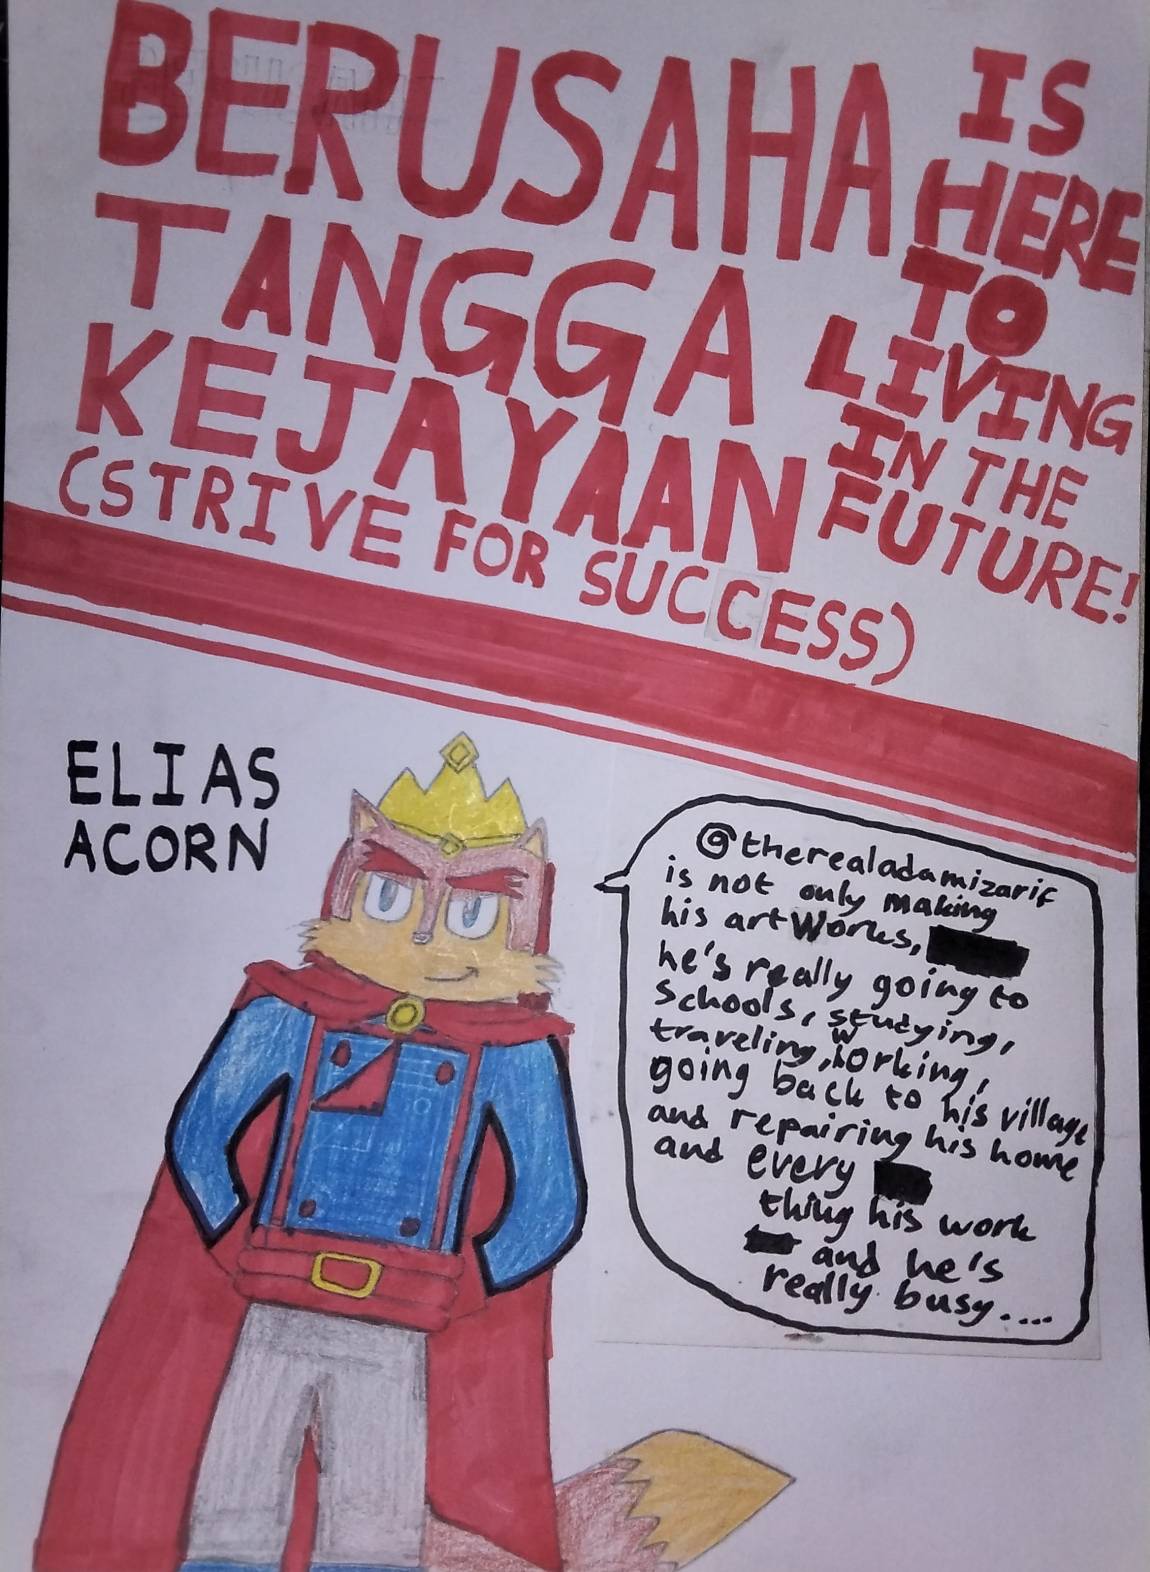 BERUSAHA
TANGGA
KEJAYAAN
(STRIVE FOR SUCCESS)
IS
HERE
TO
LIVING
IN THE
FUTURE!
ELIAS
ACORN
@therealadamizarif
is not only making
his artworks,
he's really going to
schools, studying,
traveling, working,
going back to his village
and repairing his home
and every
thing his work
and he's
really busy....